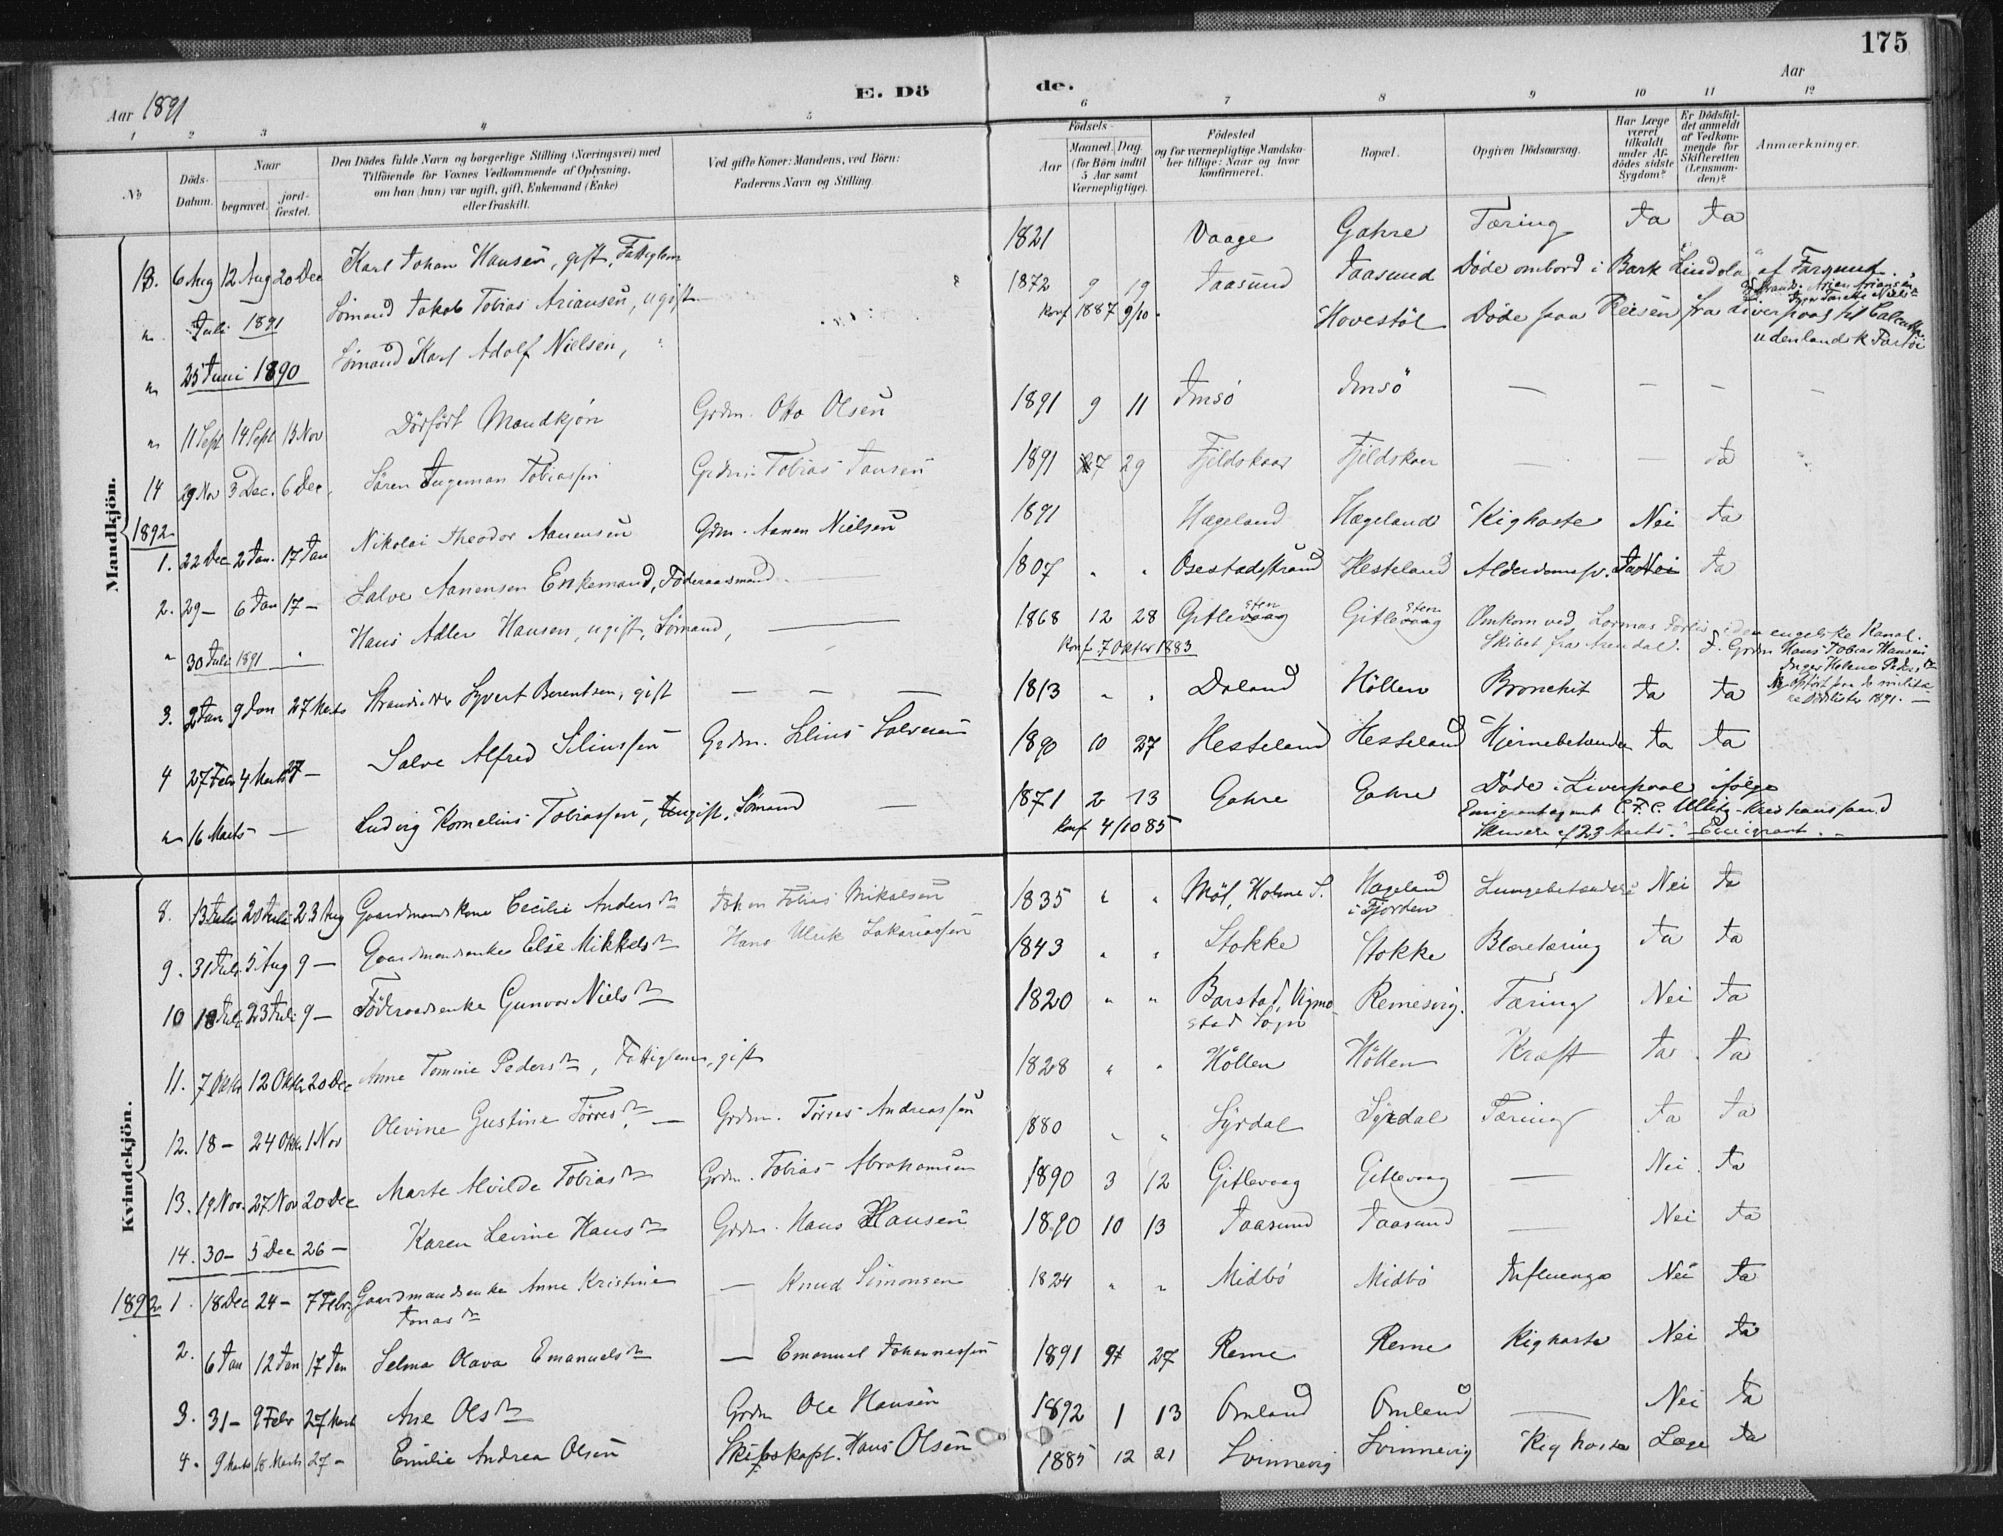 175
Aar 1891
E. Dö de.
Aar
1 2 3 4 5 6 7 8 9 10 11 12
No
Döds-Datum.
Naar
begravet.
jord-fæstet.
Den Dödes fulde Navn og borgerlige Stilling (Næringsvei) med
Tilföiende for Voxnes Vedkommende af Oplysning,
om han (hun) var ugift, gift, Enkemand (Enke)
eller fraskilt.
Ved gifte Koner: Mandens, ved Börn:
Faderens Navn og Stilling.
Födsels-
Aar
Maaned. Dag.
(for Börn indtil 5 Aar samt Værnepligtige).
Födested
og for værnepligtige Mandskaber tillige: Naar og hvor konfirmeret.
Bopæl.
Opgiven Dödsaarsag.
Har Læge været tilkaldt under Afdödes sidste Sygdom?
Er Dödsfaldet anmeldt af Vedkommende for Skifteretten (Lensmanden)?
Anmærkninger.
Mandkjön.
13. 6 Aug 12 Aug 20 Dec Karl Johan Hansen, gift, Fattiglem 1821 Vaage Gahre Tæring Ja Ja
" Juli 1891 Sömand Jakob Tobias Ariansen, ugift 1872 9 19 Taasund Taasund Döde ombord i Bark "Lindola" af Farsund.
Konf 1887 9/10
" 25 Juni 1890 Sömand Karl Adolf Nielsen, Hovestöl Döde paa Reisen fra Liverpool til Calcutta
udenlandsk Fartöi
" 11 Sept 14 Sept 13 Nov Dödfödt Mandkjön Grdm. Otto Olsen 1891 9 11 Imsö Imsö — — — —
14 29 Nov 3 Dec. 6 Dec. Sören Ingeman Tobiassen Grdm. Tobias Jansen 1891 7 29 Fjeldskaar Fjeldskaar — — Ja
1892
1. 22 Dec 2 Jan. 17 Jan Nikolai Theodor Aanensen Grdm. Aanen Nielsen 1891 Hægeland Hægeland Kighoste Nei Ja
2. 29 — 6 Jan 17 — Salve Aanensen Enkemand, Föderaadsmand — 1807 " " Osestadstrand Hesteland Alderdomssv. Ja Nei Ja
" 30 Juli 1891 " Hans Adler Hansen, ugift, Sömand, — 1868 12 28 Gitlevaag sten Gitlevaag sten Omkom ved Lormas Forlis i den engelske Kanal.
Konf 7 Oktbr 1883 Skibet fra Arendal. F. Grdm Hans Tobias Hansen
3. 2 Jan 9 Jan 27 Marts Strandsidder Syvert Berentsen, gift — — — 1813 " " Daland Höllen Bronchit Ja Ja
4 27 Febr 4 Marts 27 — Salve Alfred Siliussen Grdm. Silius Salvesen 1890 10 27 Hesteland Hesteland Hjernebetændelse Ja Ja
" 16 Marts — Ludvig Kornelius Tobiassen, ugift, Sömand — 1871 2 13 Gahre Gahre Döde i Liverpool ifölge
Konf 4/10 85 Emigrantagent C.F.C. Kristianssand
Skrivelse af 23 Marts. Emigrant.
Kvindekjön.
8. 13 Juli 20 Juli 23 Aug Gaardmandskone Cecilie Andersdtr Johan Tobias Mikalsen 1835 " " Möl, Holme S. Hægeland i Fjorden Lungebetændelse Nei Ja
9. 31 Juli 5 Aug 9 — Gaardmandsenke Else Mikkelsdtr Hans Ulrik Zakariassen 1843 " " Stokke Stokke Blæretæring Ja Ja
10 18 Juli 23 Juli 9 — Föderaadsenke Gunvor Nielsdtr 1820 " " Barstad, Vigmostad Sogn Remesvig. Tæring Nei Ja
11. 7 Oktbr 12 Oktbr 20 Dec Anne Tomine Pedersdtr, Fattiglem, gift 1828 " " Höllen Höllen Kræft Ja Ja
12. 18 — 24 Oktbr 1 Nov Olevine Gustine Törresdtr — Grdm. Törres Andreassen 1880 " " Syrdal Syrdal Tæring Ja Ja
13. 19 Nov. 27 Nov 20 Dec Marte Alvilde Tobiasdtr Grdm. Tobias Abrahamsen 1890 3 12 Gitlevaag Gitlevaag — Nei Ja
14. 30 — 5 Dec 26 — Karen Lavine Hansdtr Grdm. Hans Hansen 1890 10 13 Taasund Taasund — Nei Ja
1892 1. 18 Dec 24 — 7 Febr Gaardmandsenke Anne Kristine Jonasdtr — Knud Simonsen 1824 " " Midbö Midbö Influenza Nei Ja
2. 6 Jan 12 Jan 17 Jan Selma Olava Emanuelsdtr — Emanuel Johannessen 1891 27 Reme Reme Kighoste Nei Ja
3. 31 — 9 Febr 27 Marts Ane Olsdtr Grdm Ole Hansen 1892 1 13 Omland Omland — Nei Ja
4. 9 Marts 18 Marts 27 — Emilie Andrea Olsen Skibskapt. Hans Olsen 1885 12 21 Svinnevig Svinnevig Kighoste Læge Ja